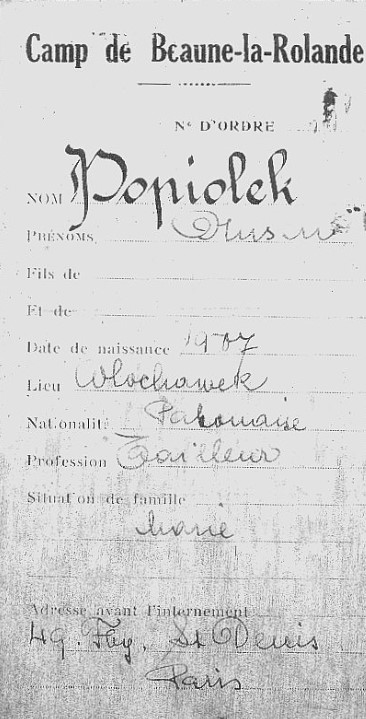 Camp de Beaune-la-Rolande
N° D'ORDRE
NOM Popiolek
PRÉNOMS
Fils de
Et de
Date de naissance 1907
Lieu Wlochawek
Nationalité Polonaise
Profession Tailleur
Situation de famille
Marié
Adresse avant l'internement
49. Fbg. St Denis
Paris